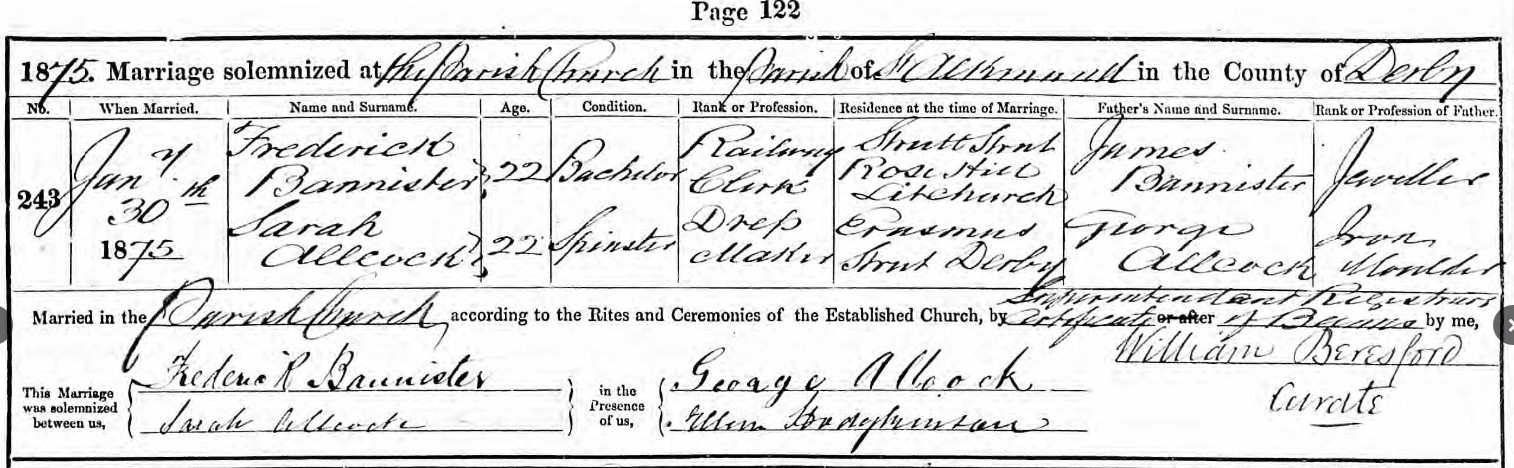 Page 122
1875. Marriage solemnized at the Parish Church in the Parish of St Alkmund in the County of Derby
No. When Married. Name and Surname. Age. Condition. Rank or Profession. Residence at the time of Marriage. Father's Name and Surname. Rank or Profession of Father.
243 Jany 30th 1875 Frederick Bannister 22 Bachelor Railway Clerk Strutt Street Rose Hill Litchurch James Bannister Jeweller
Sarah Allcock 22 Spinster Dress Maker Erasmus Street Derby George Allcock Iron Moulder
Superintendant Registrars
Married in the Parish Church according to the Rites and Ceremonies of the Established Church, by Certificate or after of Banns by me,
William Beresford
Curate
This Marriage was solemnized between us, Frederick Bannister in the Presence of us, George Allcock
Sarah Allcock Ellen Hodgkinson